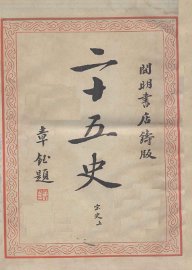 開明書店鑄版
二十五史
宋史上
章鈺題